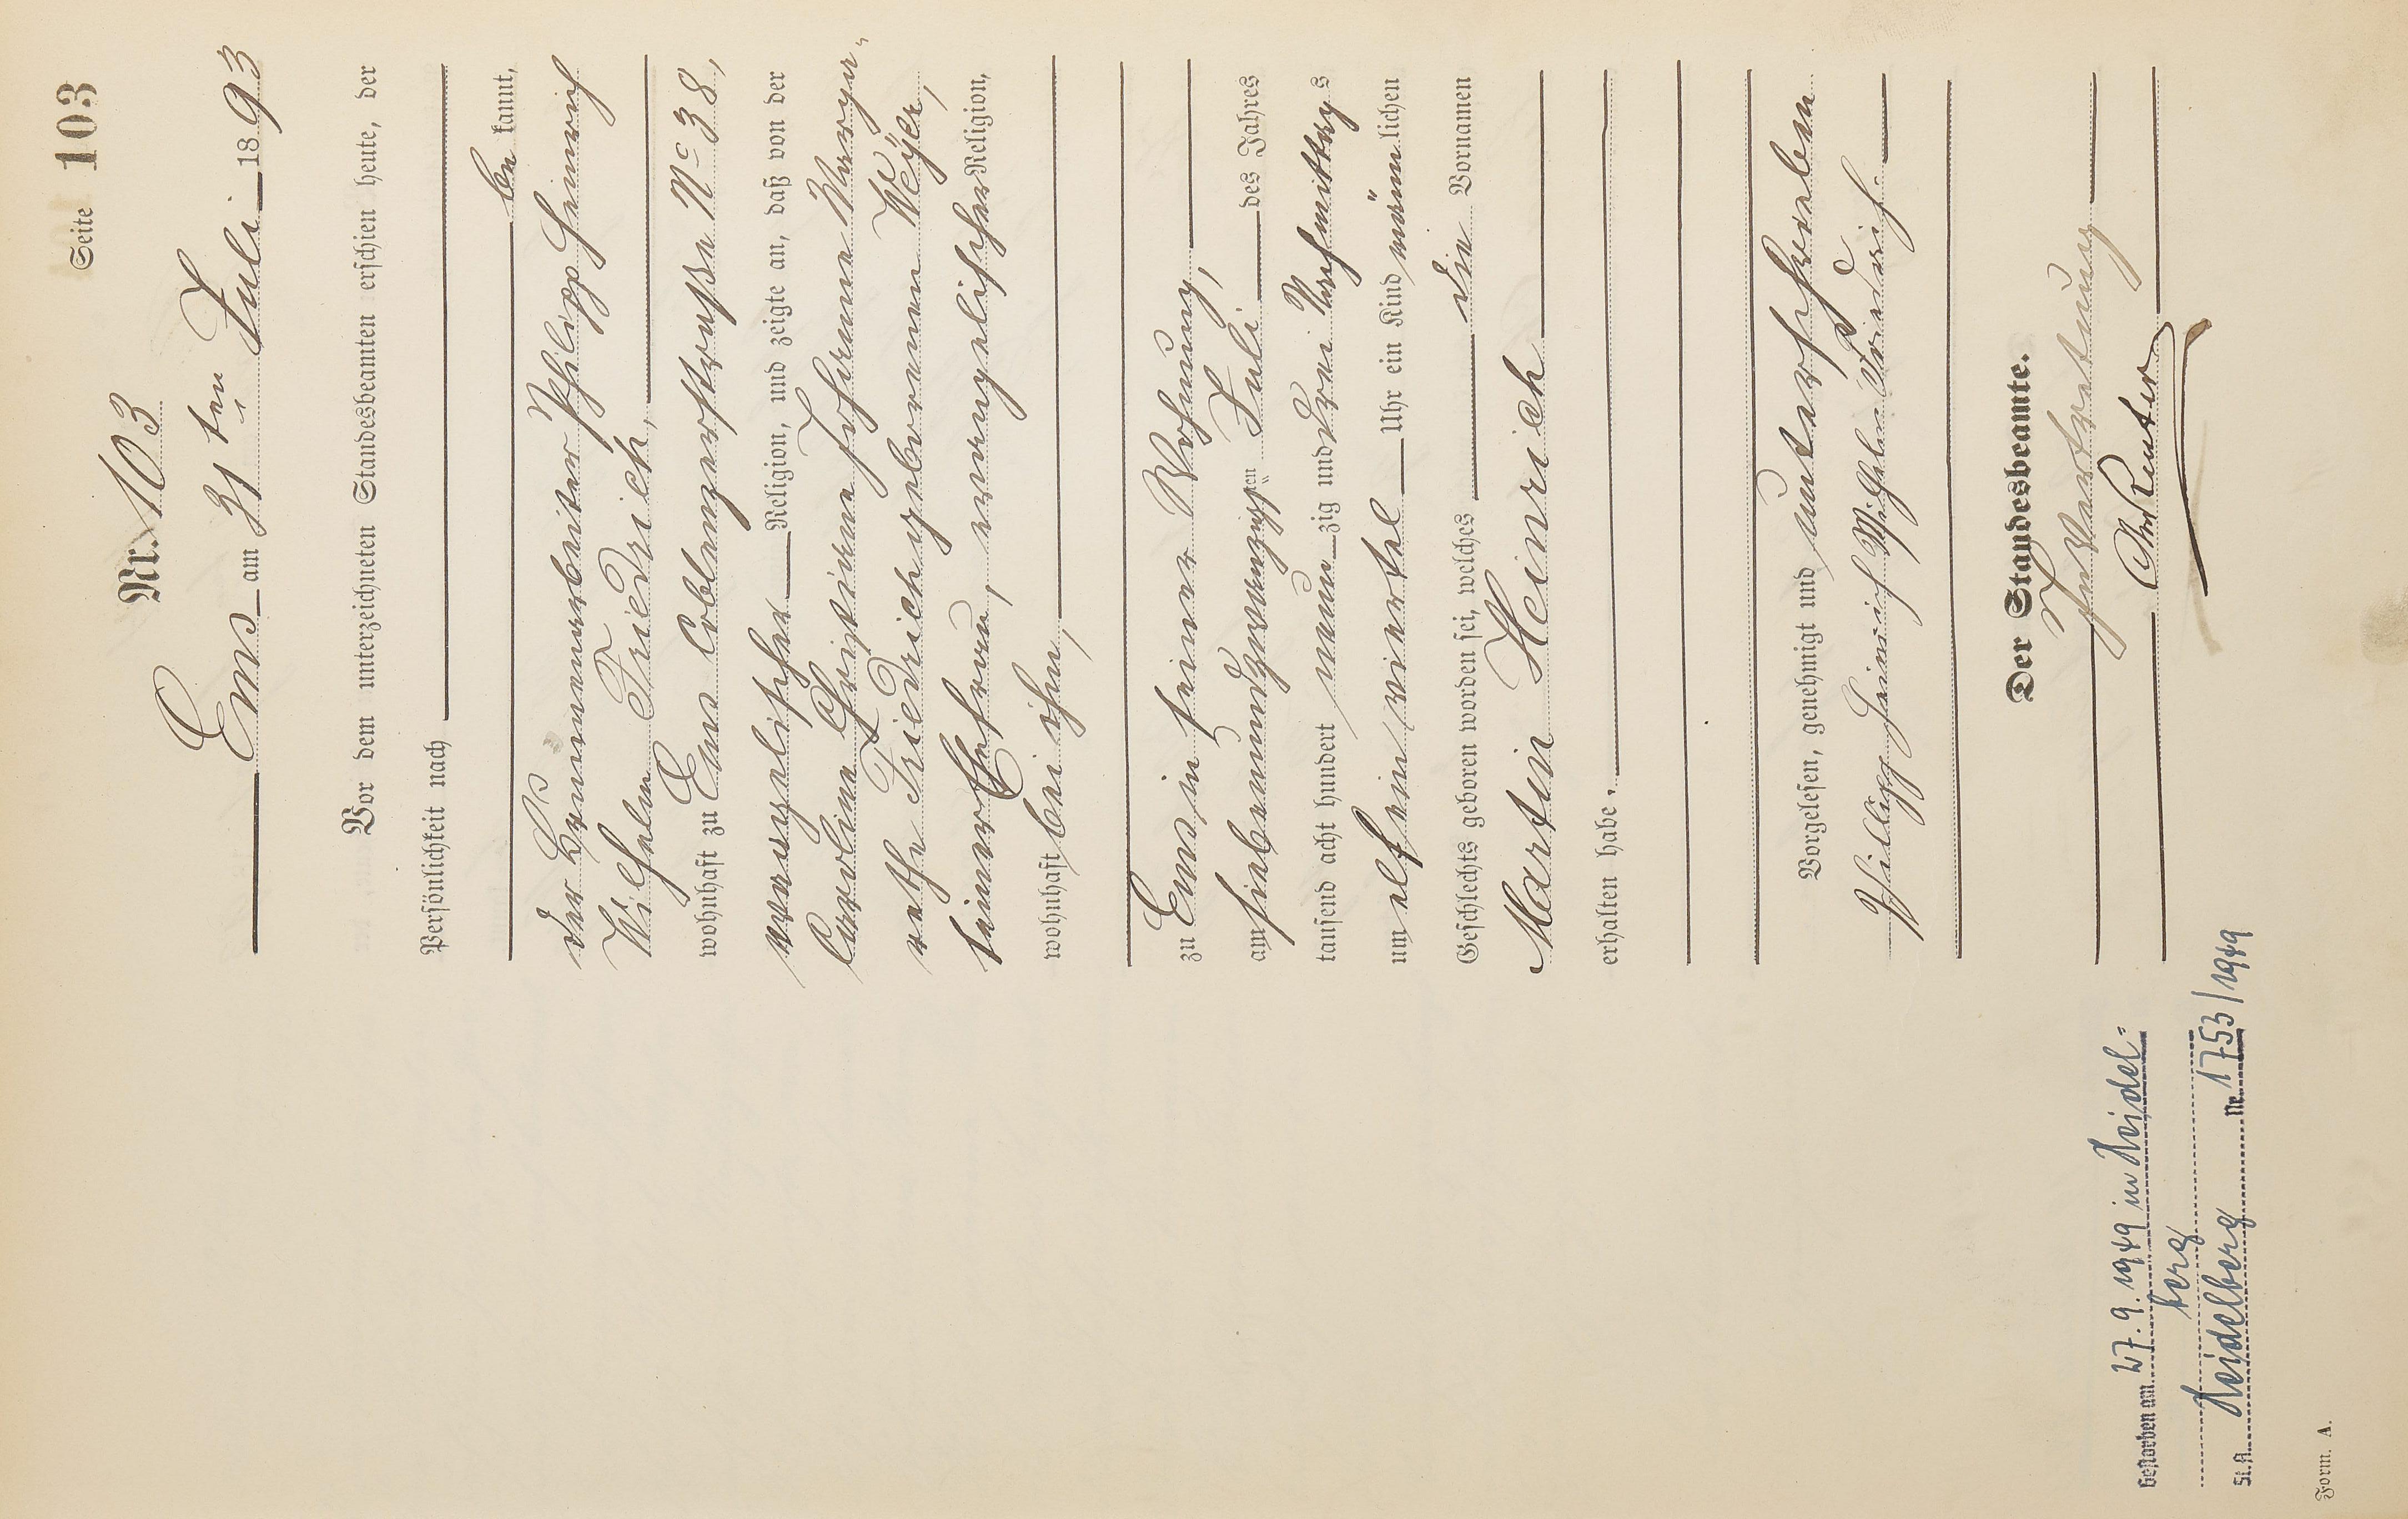 Seite 103
Nr. 103
Ems am 31ten Juli 1893
Vor dem unterzeichneten Standesbeamten erschien heute, der
Persönlichkeit nach
be kannt,
der Brunnenarbeiter Philipp Heinrich
Wilhelm Friedrich,
wohnhaft zu Ems Coblenzerstraße No 38,
evangelischer Religion, und zeigte an, daß von der
Caroline Christiane Johanna Marga-
rethe Friedrich geborenen Weyer,
seiner Ehefrau, evangelischer Religion,
wohnhaft bei ihm,
zu Ems in seiner Wohnung,
am siebenundzwanzigsten Juli des Jahres
tausend acht hundert neun zig und drei Nachmittags
um elf ein viertel Uhr ein Kind männ lichen
Geschlechts geboren worden sei, welches die Vornamen
Martin Heinrich
erhalten habe.
Vorgelesen, genehmigt und unterschrieben
Philipp Heinrich Wilhelm Friedrich.
Der Standesbeamte.
In Vertretung
Reuter
Gestorben am 27.9.1949 in Heidel-
berg
St.A. Heidelberg Nr. 1753/1949
Form. A.